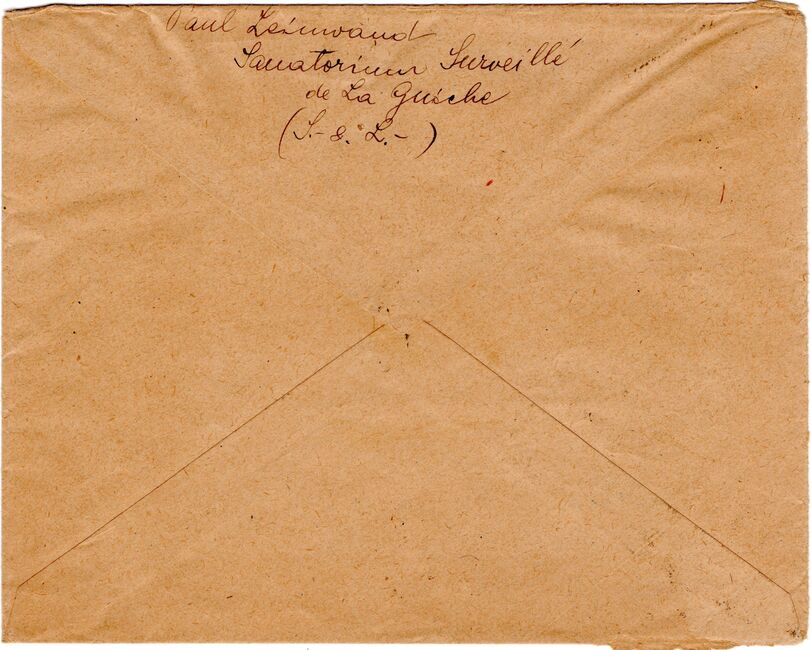 Paul Leinwand
Sanatorium Surveillé
de La Guiche
(S.- & L.-)